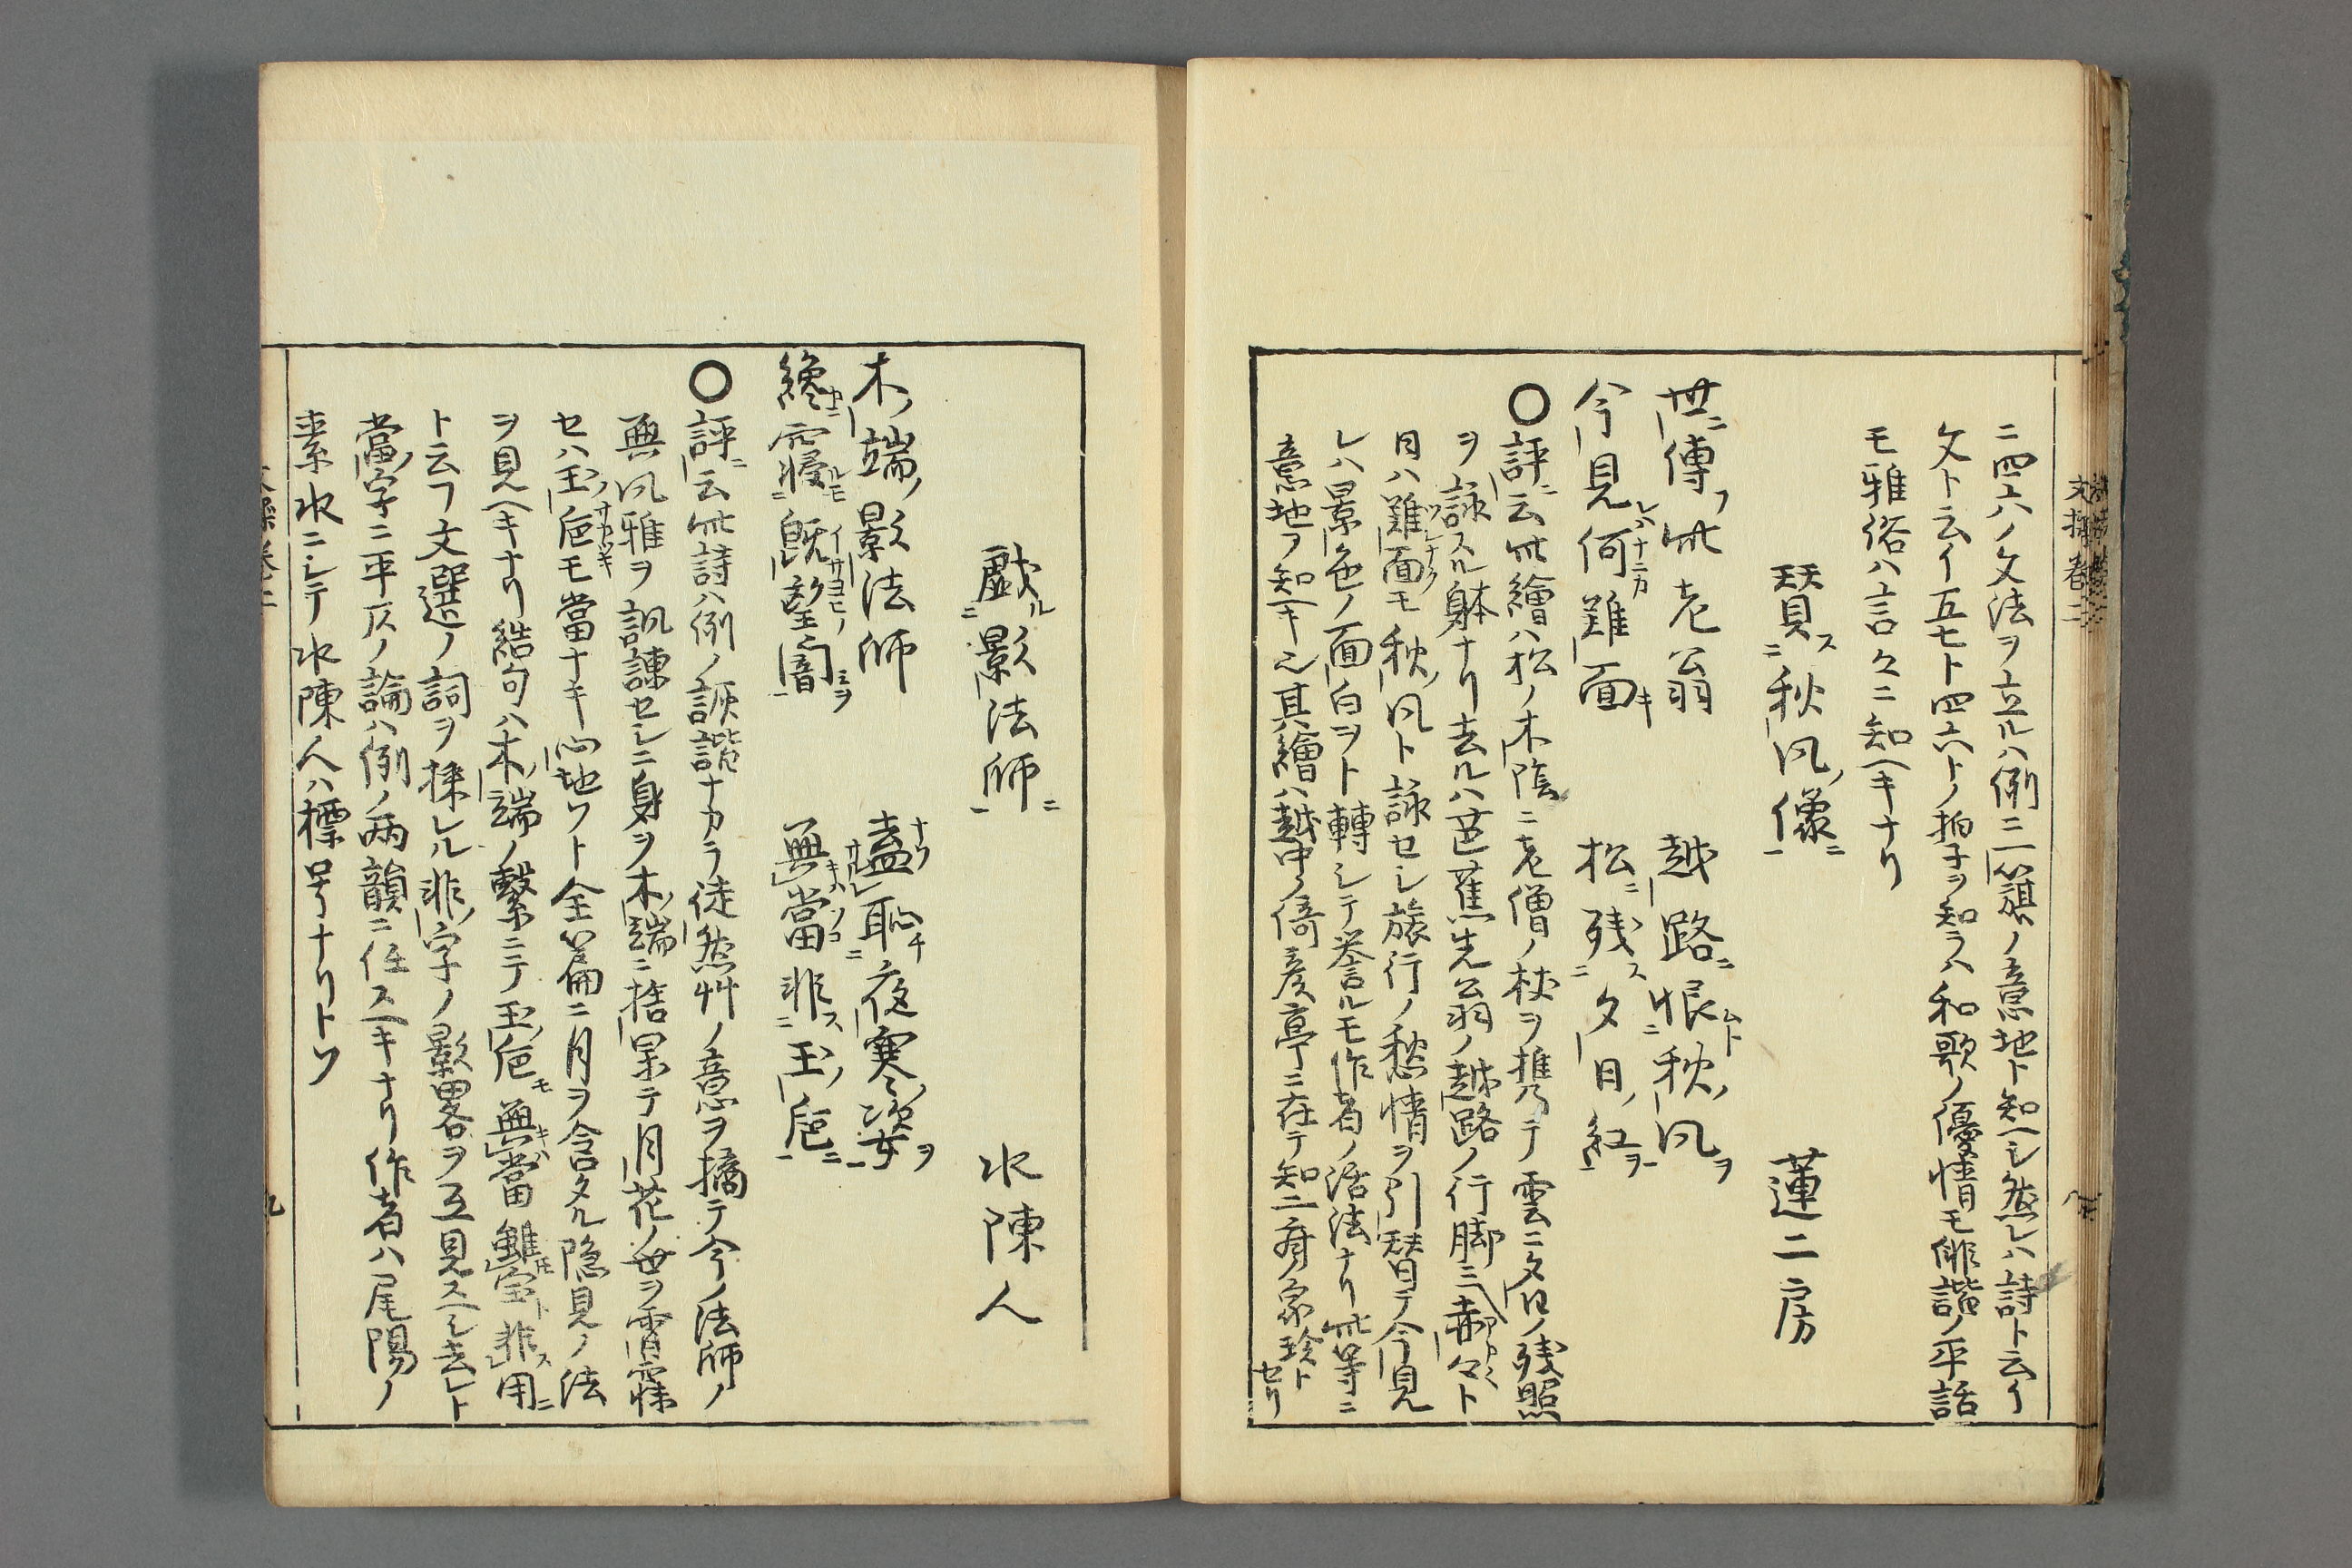 ニ四六ノ文法ヲ立ルハ例ニ二篇ノ意地ト知ヘシ然レハ詩ト云イ
文ト云イ五七ト四六トノ拍子ヲ知ラハ和歌ノ優情モ俳諧ノ平話
モ雅俗ハ言々ニ知ヘキナリ
賛ス秋風ノ像ニ 蓮二房
世ニ傳フ此老翁 越路ニ恨ムト秋ノ風ヲ
今見レハナニカ何難面キ 松ニ残ス夕日ノ紅ヲ
○評ニ云此繪ハ松ノ木陰ニ老僧ノ杖ヲ携ヘテ雲ニ夕日ノ残照
ヲ詠スル躰ナリ去ルハ芭蕉先公羽ノ越路ノ行脚ニ赤々ト
日ハ難面モ秋ノ風ト詠セシ旅行ノ愁情ヲ引替テ今見
レハ景色ノ面白ヲト轉シテ誉ルモ作者ノ活法ナリ此等ニ
意地ヲ知ヘキ也其繪ハ越中ノ倚彦亭ニ在テ知二房ノ家珍トセリ
戯ル影法師ニ 水陳人
木ノ端ノ影法師 盍ナンソ恥ハチ夜寒ノ姿ヲ
纔ニ寝レモ既望イサヨヒノ闇ニヲ 無當ソコ非ス玉ノ巵ニ
○評ニ云此詩ハ例ノ誹諧ナカラ徒然艸ノ意ヲ摘テ今ノ法師ノ
無風雅ヲ諷諫セシニ身ヲ木ノ端ニ捨果テ月花ノ世ヲ宵寐
セハ玉ノ巵サカヅキモ當ナキ心地ソト全篇ニ月ヲ含タル隠見ノ法
ヲ見ヘキナリ結句ハ木ノ端ノ繋ニテ玉ノ巵モ無當雖宝ト非ス用ニ
ト云フ文選ノ詞ヲ採レル非ノ字ノ影畧ヲ互見スヘシ去レト
當ノ字ニ平仄ノ論ハ例ノ両韻ニ任スヘキナリ作者ハ尾陽ノ
素水ニシテ水陳人ハ標号ナリトソ